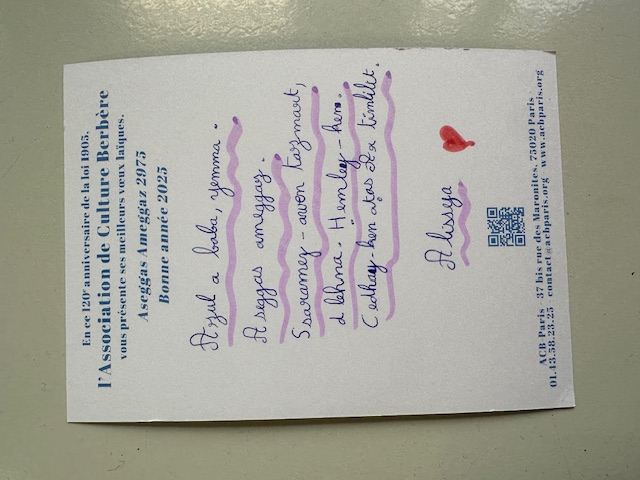 En ce 120e anniversaire de la loi 1905,
l'Association de Culture Berbère
vous présente ses meilleurs vœux laïques.
Aseggas Ameggaz 2975
Bonne année 2025
Azul a baba, yemma.
Aseggas ameggaz.
Ssaramey-awen tazmart,
d lehna. Hemley-ken.
Cedhay-ken aṭas Ar timlilit.
Alissya
ACB Paris - 37 bis rue des Maronites, 75020 Paris
01.43.58.23.25 - contact@acbparis.org - www.acbparis.org